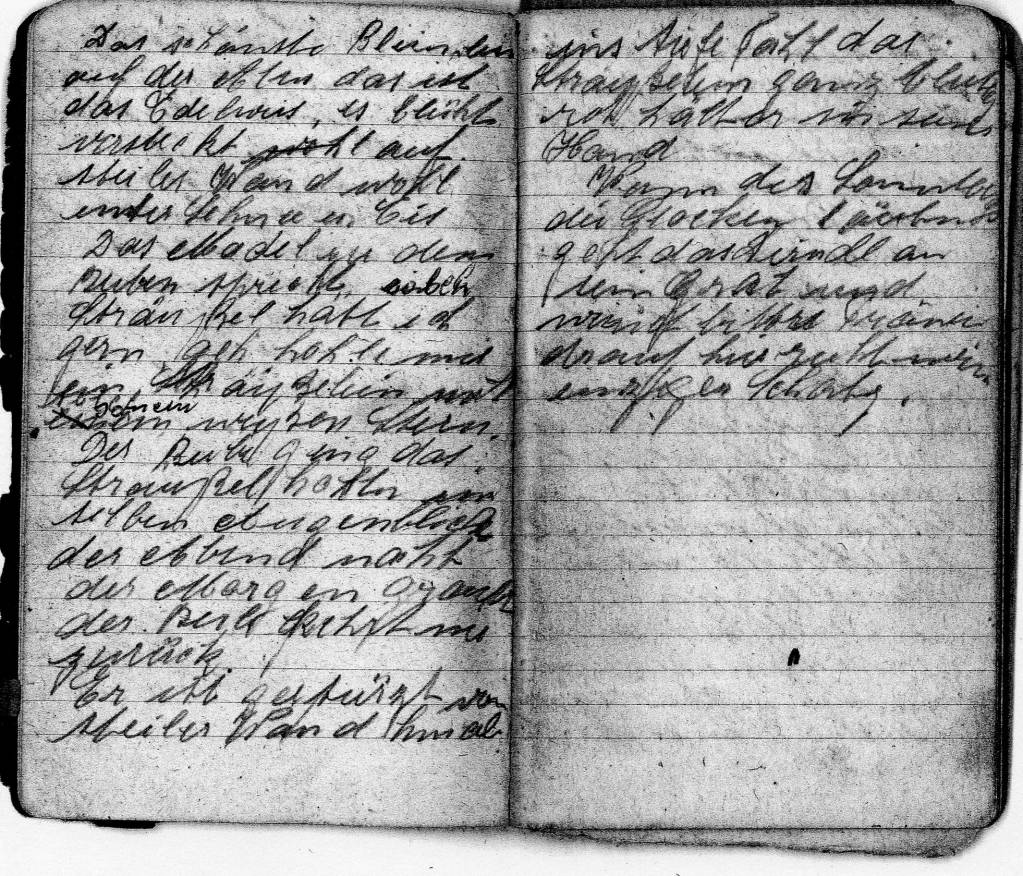 Das schönste Blümlein
auf der Alm das ist
das Edelweis, es blüht
versteckt auf
steiler Wand wohl
unter Schnee u. Eis
Das Madel zu dem
Buben spricht,
Sträußel hätt ich
gern, geh hohle mir
ein Sträußelein mit
weißen Stern.
Der Bube ging das
Sträußel hohln im
selben Augenblick
der Abend naht
der Morgen graut
der Bube kehrt nie
zurück.
Er ist gestürzt von
steiler Wand hinab
ins tiefe Tahl das
Sträußelein ganz blutig
rot hält er in seine
Hand
Wann des Sonntags
die Glocken läuten
geht das Dirndl an
sein Grab und
weint bittre Tränen
drauf hier ruht mein
einziger Schatz.